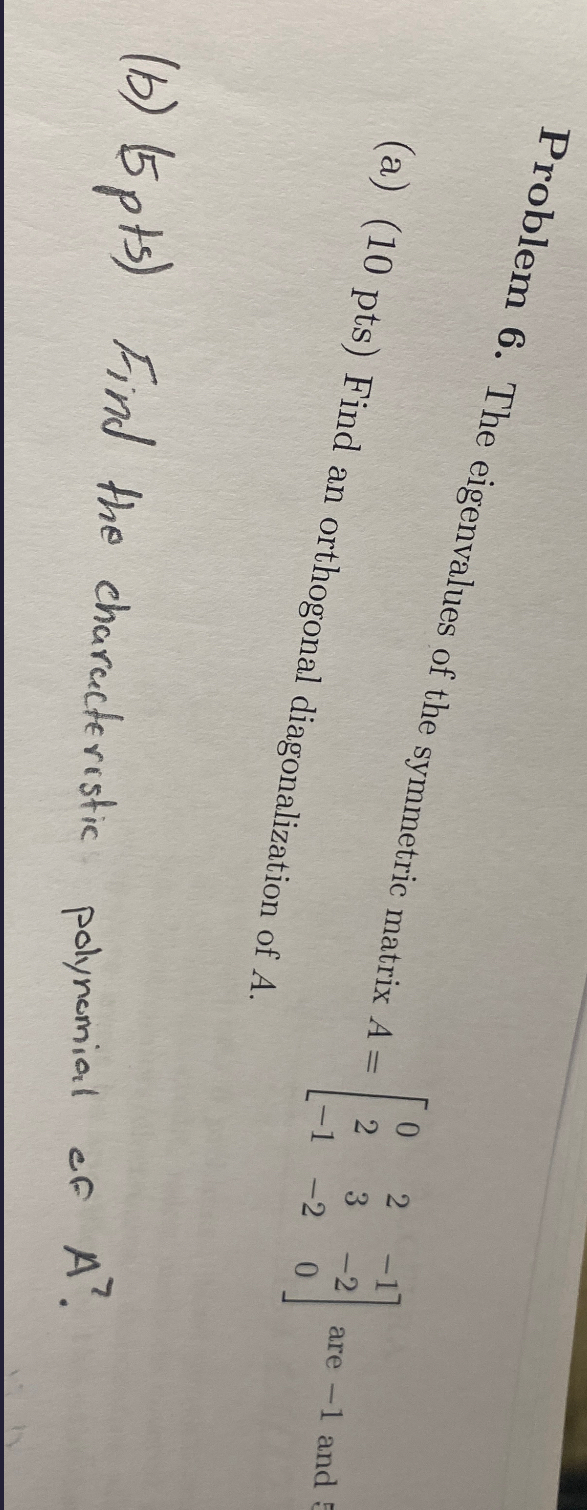 Problem 6. The eigenvalues of the symmetric matrix A = [0 2 −1; 2 3 −2; −1 −2 0] are −1 and 5
(a) (10 pts) Find an orthogonal diagonalization of A.
(b) (5 pts) Find the characteristic polynomial of A?